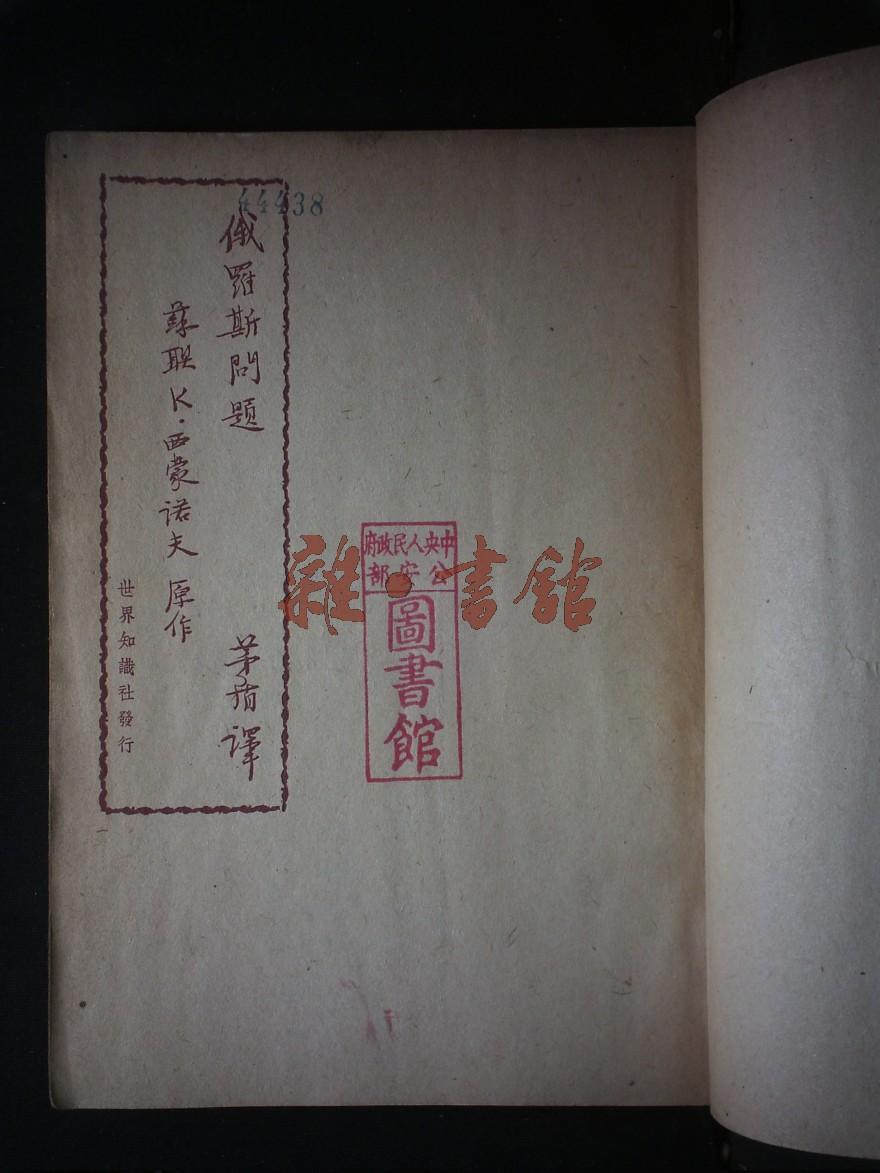 44438
俄羅斯問題
蘇聯K·西蒙诺夫 原作
茅盾譯
世界知識社發行
中央人民政府
公安部
圖書館
雜·書館